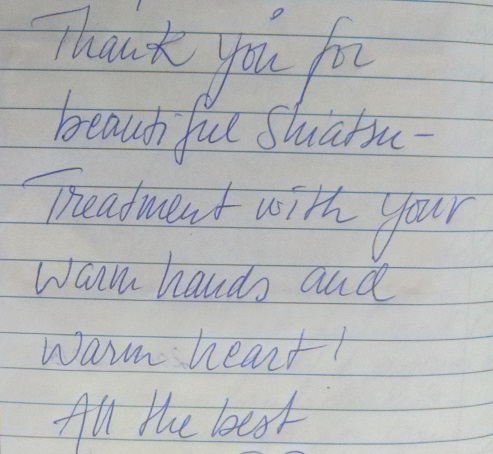 Thank you for
beautiful Shiatsu-
Treatment with your
warm hands and
warm heart!
All the best